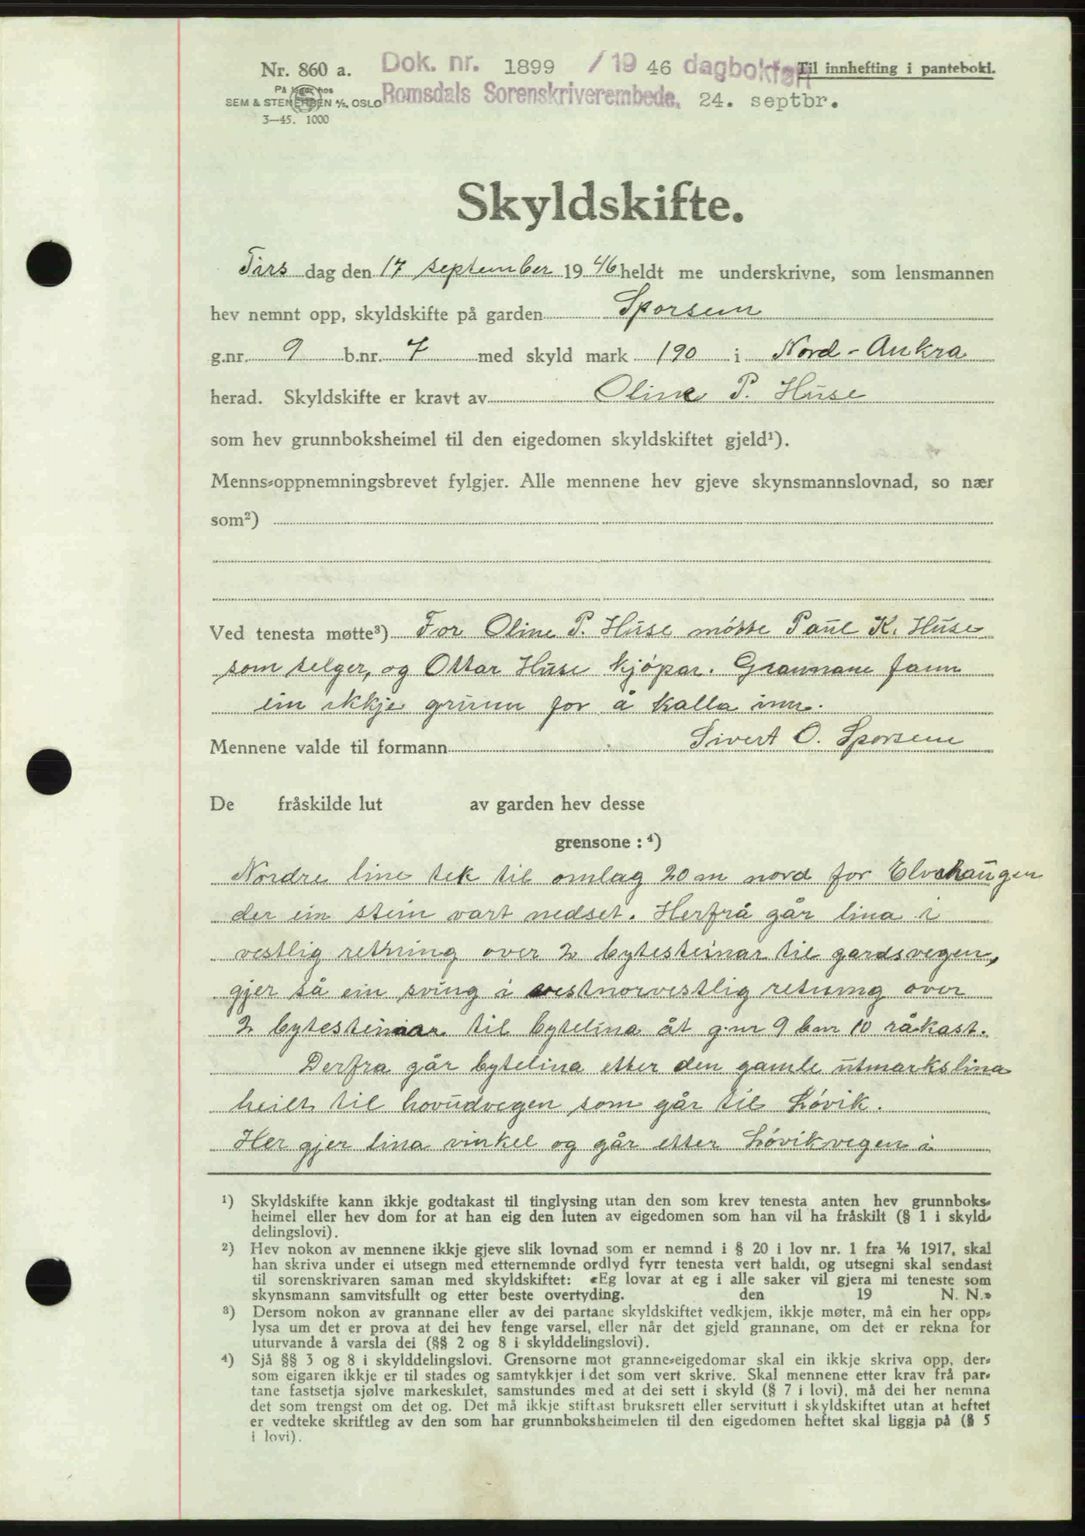 Nr. 860 a. Dok. nr. 1899 / 19 46 dagbokført Til innhefting i pantebokl.
På lager hos
SEM & STENERSEN A/S, OSLO Romsdals Sorenskriverembede, 24. septbr.
3—45. 1000
Skyldskifte.
Tirs dag den 17 september 19 46 heldt me underskrivne, som lensmannen
hev nemnt opp, skyldskifte på garden Sporsem
g.nr. 9 b.nr. 7 med skyld mark 190 i Nord-Aukra
herad. Skyldskifte er kravt av Oline P. Huse
som hev grunnboksheimel til den eigedomen skyldskiftet gjeld¹).
Menns-oppnemningsbrevet fylgjer. Alle mennene hev gjeve skynsmannslovnad, so nær
som²)
Ved tenesta møtte³) For Oline P. Huse møtte Paul K. Huse
som selger, og Ottar Huse kjøpar. Grannane fann
ein ikkje grunn for å kalla inn.
Mennene valde til formann Sivert O. Sporsem
De fråskilde lut av garden hev desse
grensone : ⁴)
Nordre line tek til omlag 20 m nord for Elvehaugen
der ein stein vart nedset. Herfrå går lina i
vestlig retning over 2 bytesteinar til gardsvegen,
gjer så ein sving i vestnorvestlig retning over
2 bytesteinar til bytelina åt g.nr 9 bnr 10 råkast.
Derfra går bytelina etter den gamle utmarkslina
heilt til hovudvegen som går til Løvik.
Her gjer lina vinkel og går etter Løvikvegen i
¹) Skyldskifte kann ikkje godtakast til tinglysing utan den som krev tenesta anten hev grunnboks-
heimel eller hev dom for at han eig den luten av eigedomen som han vil ha fråskilt (§ 1 i skyld-
delingslovi).
²) Hev nokon av mennene ikkje gjeve slik lovnad som er nemnd i § 20 i lov nr. 1 fra ⅙ 1917, skal
han skriva under ei utsegn med etternemnde ordlyd fyrr tenesta vert haldi, og utsegni skal sendast
til sorenskrivaren saman med skyldskiftet: «Eg lovar at eg i alle saker vil gjera mi teneste som
skynsmann samvitsfullt og etter beste overtyding. den 19 N. N.»
³) Dersom nokon av grannane eller av dei partane skyldskiftet vedkjem, ikkje møter, må ein her opp-
lysa um det er prova at dei hev fenge varsel, eller når det gjeld grannane, om det er rekna for
uturvande å varsla dei (§§ 2 og 8 i skylddelingslovi).
⁴) Sjå §§ 3 og 8 i skylddelingslovi. Grensorne mot granne-eigedomar skal ein ikkje skriva opp, der-
som eigaren ikkje er til stades og samtykkjer i det som vert skrive. Skal mennene etter krav frå par-
tane fastsetja sjølve markeskilet, samstundes med at dei sett i skyld (§ 7 i lovi), må dei her nemna
det som trengst om det og. Det må ikkje stiftast bruksrett eller servitutt i skyldskiftet utan at heftet
er vedteke skriftleg av den som har grunnboksheimelen til den eigedomen heftet skal liggja på (§ 5
i lovi).